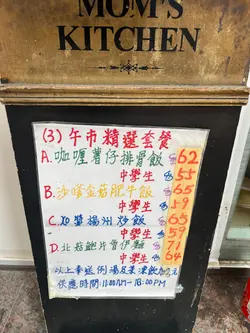 MOM'S
KITCHEN
(3) 午市精選套餐
A. 咖喱薯仔排骨飯 62
中學生 55
B. 沙嗲金菇肥牛飯 65
中學生 59
C. XO醬揚州炒飯 65
中學生 59
D. 北菇鮑片炆伊麵 71
中學生 64
以上奉送例湯及菜凍飲加元
供應時間：11:00AM－18:00PM